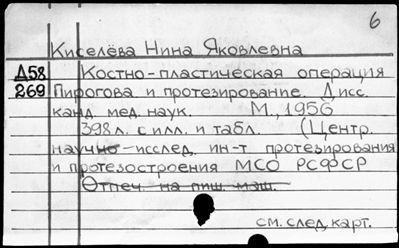 6
Киселёва Нина Яковлевна
Д58 Костно-пластическая операция
269 Пирогова и протезирование. Дисс.
канд. мед. наук. М., 1956
398 л. с илл. и табл. (Центр.
научно-исслед. ин-т протезирования
и протезостроения МСО РСФСР
Отпеч. на пиш. маш.
см. след. карт.